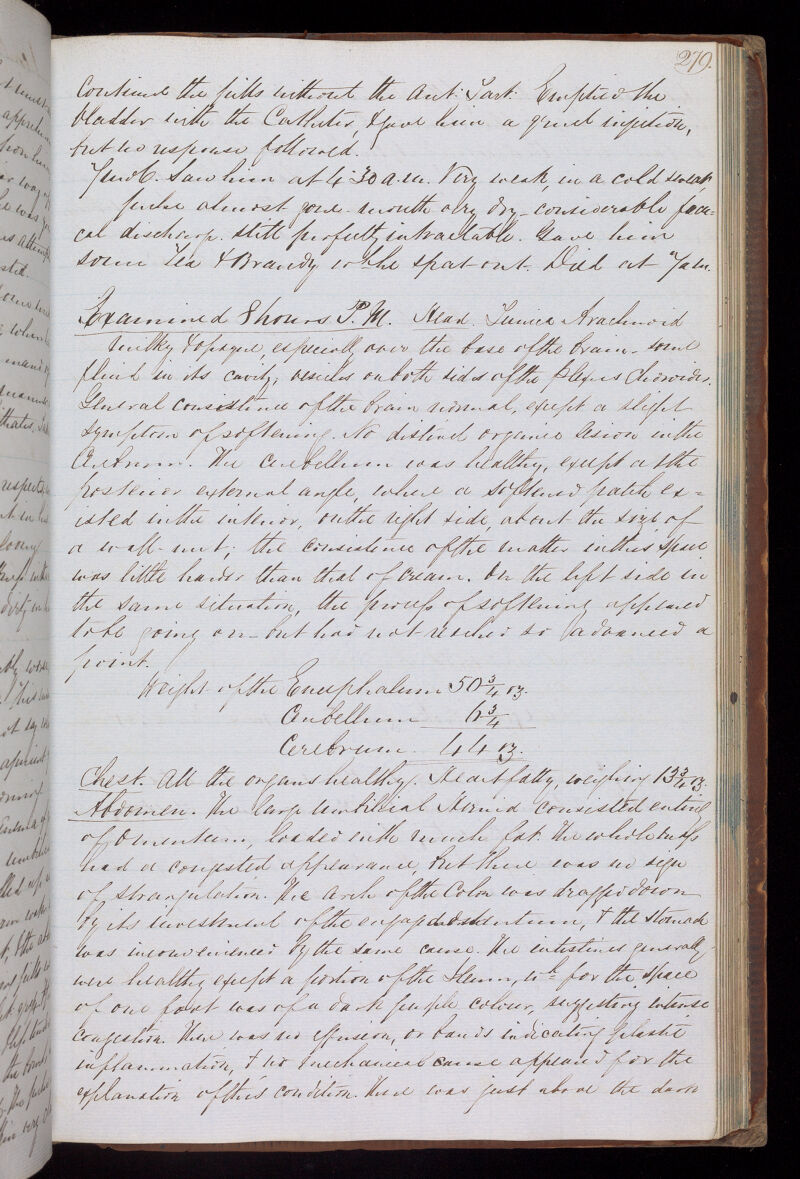 279.
Continued the pills without the Ant: Tart. Emptied the
bladder with the Catheter, & gave him a gruel injection,
but no response followed.
Saw him at 4.30 a.m. Very weak, in a cold sweat,
pulse almost gone. mouth very dry - considerable fæ-
cal discharge. still perfectly intractable. Gave him
some Tea & Brandy wh. he spat out. Died at 7 a.m.
Examined 8 hours P.M. Head. Tunica Arachnoid
milky & opaque, especially over the base of the brain - some
fluid in its cavity; vesicles on both sides of the Plexus Choroides.
General consistence of the brain normal, except a slight
symptom of softening. No distinct organic lesion in the
Cerebrum. The cerebellum was healthy, except at the
posterior external angle, where a softened patch ex=
isted in the interior, on the right side, about the size of
a wall-nut; the consistence of the matter in this space
was little harder than that of cream. On the left side in
the same situation, the process of softening appeared
to be going on - but had not reached so advanced a
point.
Weight of the Encephalum 50 3/4 oz.
Cerebellum 6 3/4
Cerebrum. 44 oz.
Chest. All the organs healthy. Heart fatty, weighing 13 3/4 oz.
Abdomen. The large Umbilical Hernia consisted entirely
of Omentum, loaded with much fat. The whole mass
had a congested appearance, but there was no sign
of strangulation. The Arch of the Colon was dragged down
by its investment of the engaged omentum, & the stomach
was inconvenienced by the same cause. The intestines generally
were healthy except a portion of the Ileum, wh. for the space
of one foot was of a dark purple colour, suggesting intense
congestion. There was no effusion, or bands indicating plastic
inflammation, & no mechanical cause appeared for the
explanation of this condition. There was just above the dark